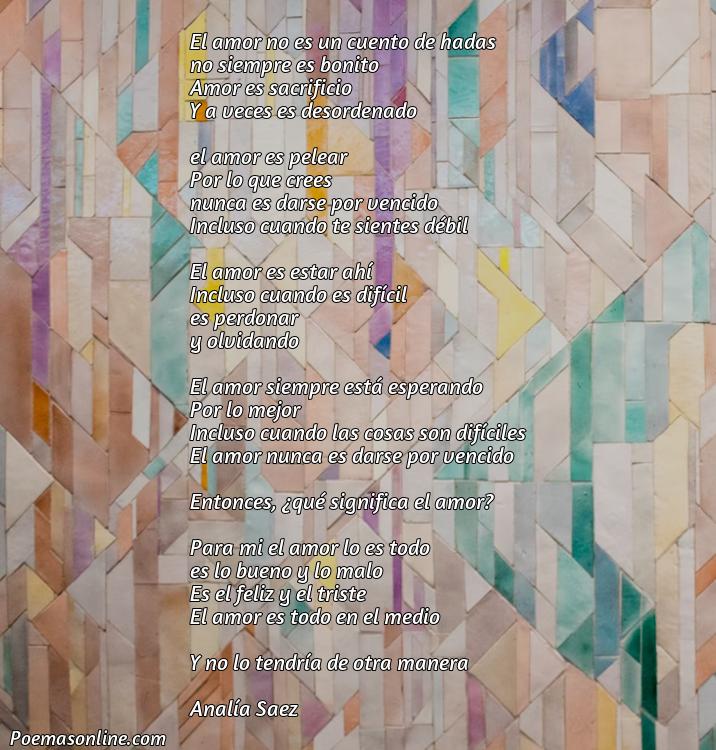 El amor no es un cuento de hadas
no siempre es bonito
Amor es sacrificio
Y a veces es desordenado
el amor es pelear
Por lo que crees
nunca es darse por vencido
Incluso cuando te sientes débil
El amor es estar ahí
Incluso cuando es difícil
es perdonar
y olvidando
El amor siempre está esperando
Por lo mejor
Incluso cuando las cosas son difíciles
El amor nunca es darse por vencido
Entonces, ¿qué significa el amor?
Para mi el amor lo es todo
es lo bueno y lo malo
Es el feliz y el triste
El amor es todo en el medio
Y no lo tendría de otra manera
Analía Saez
Poemasonline.com